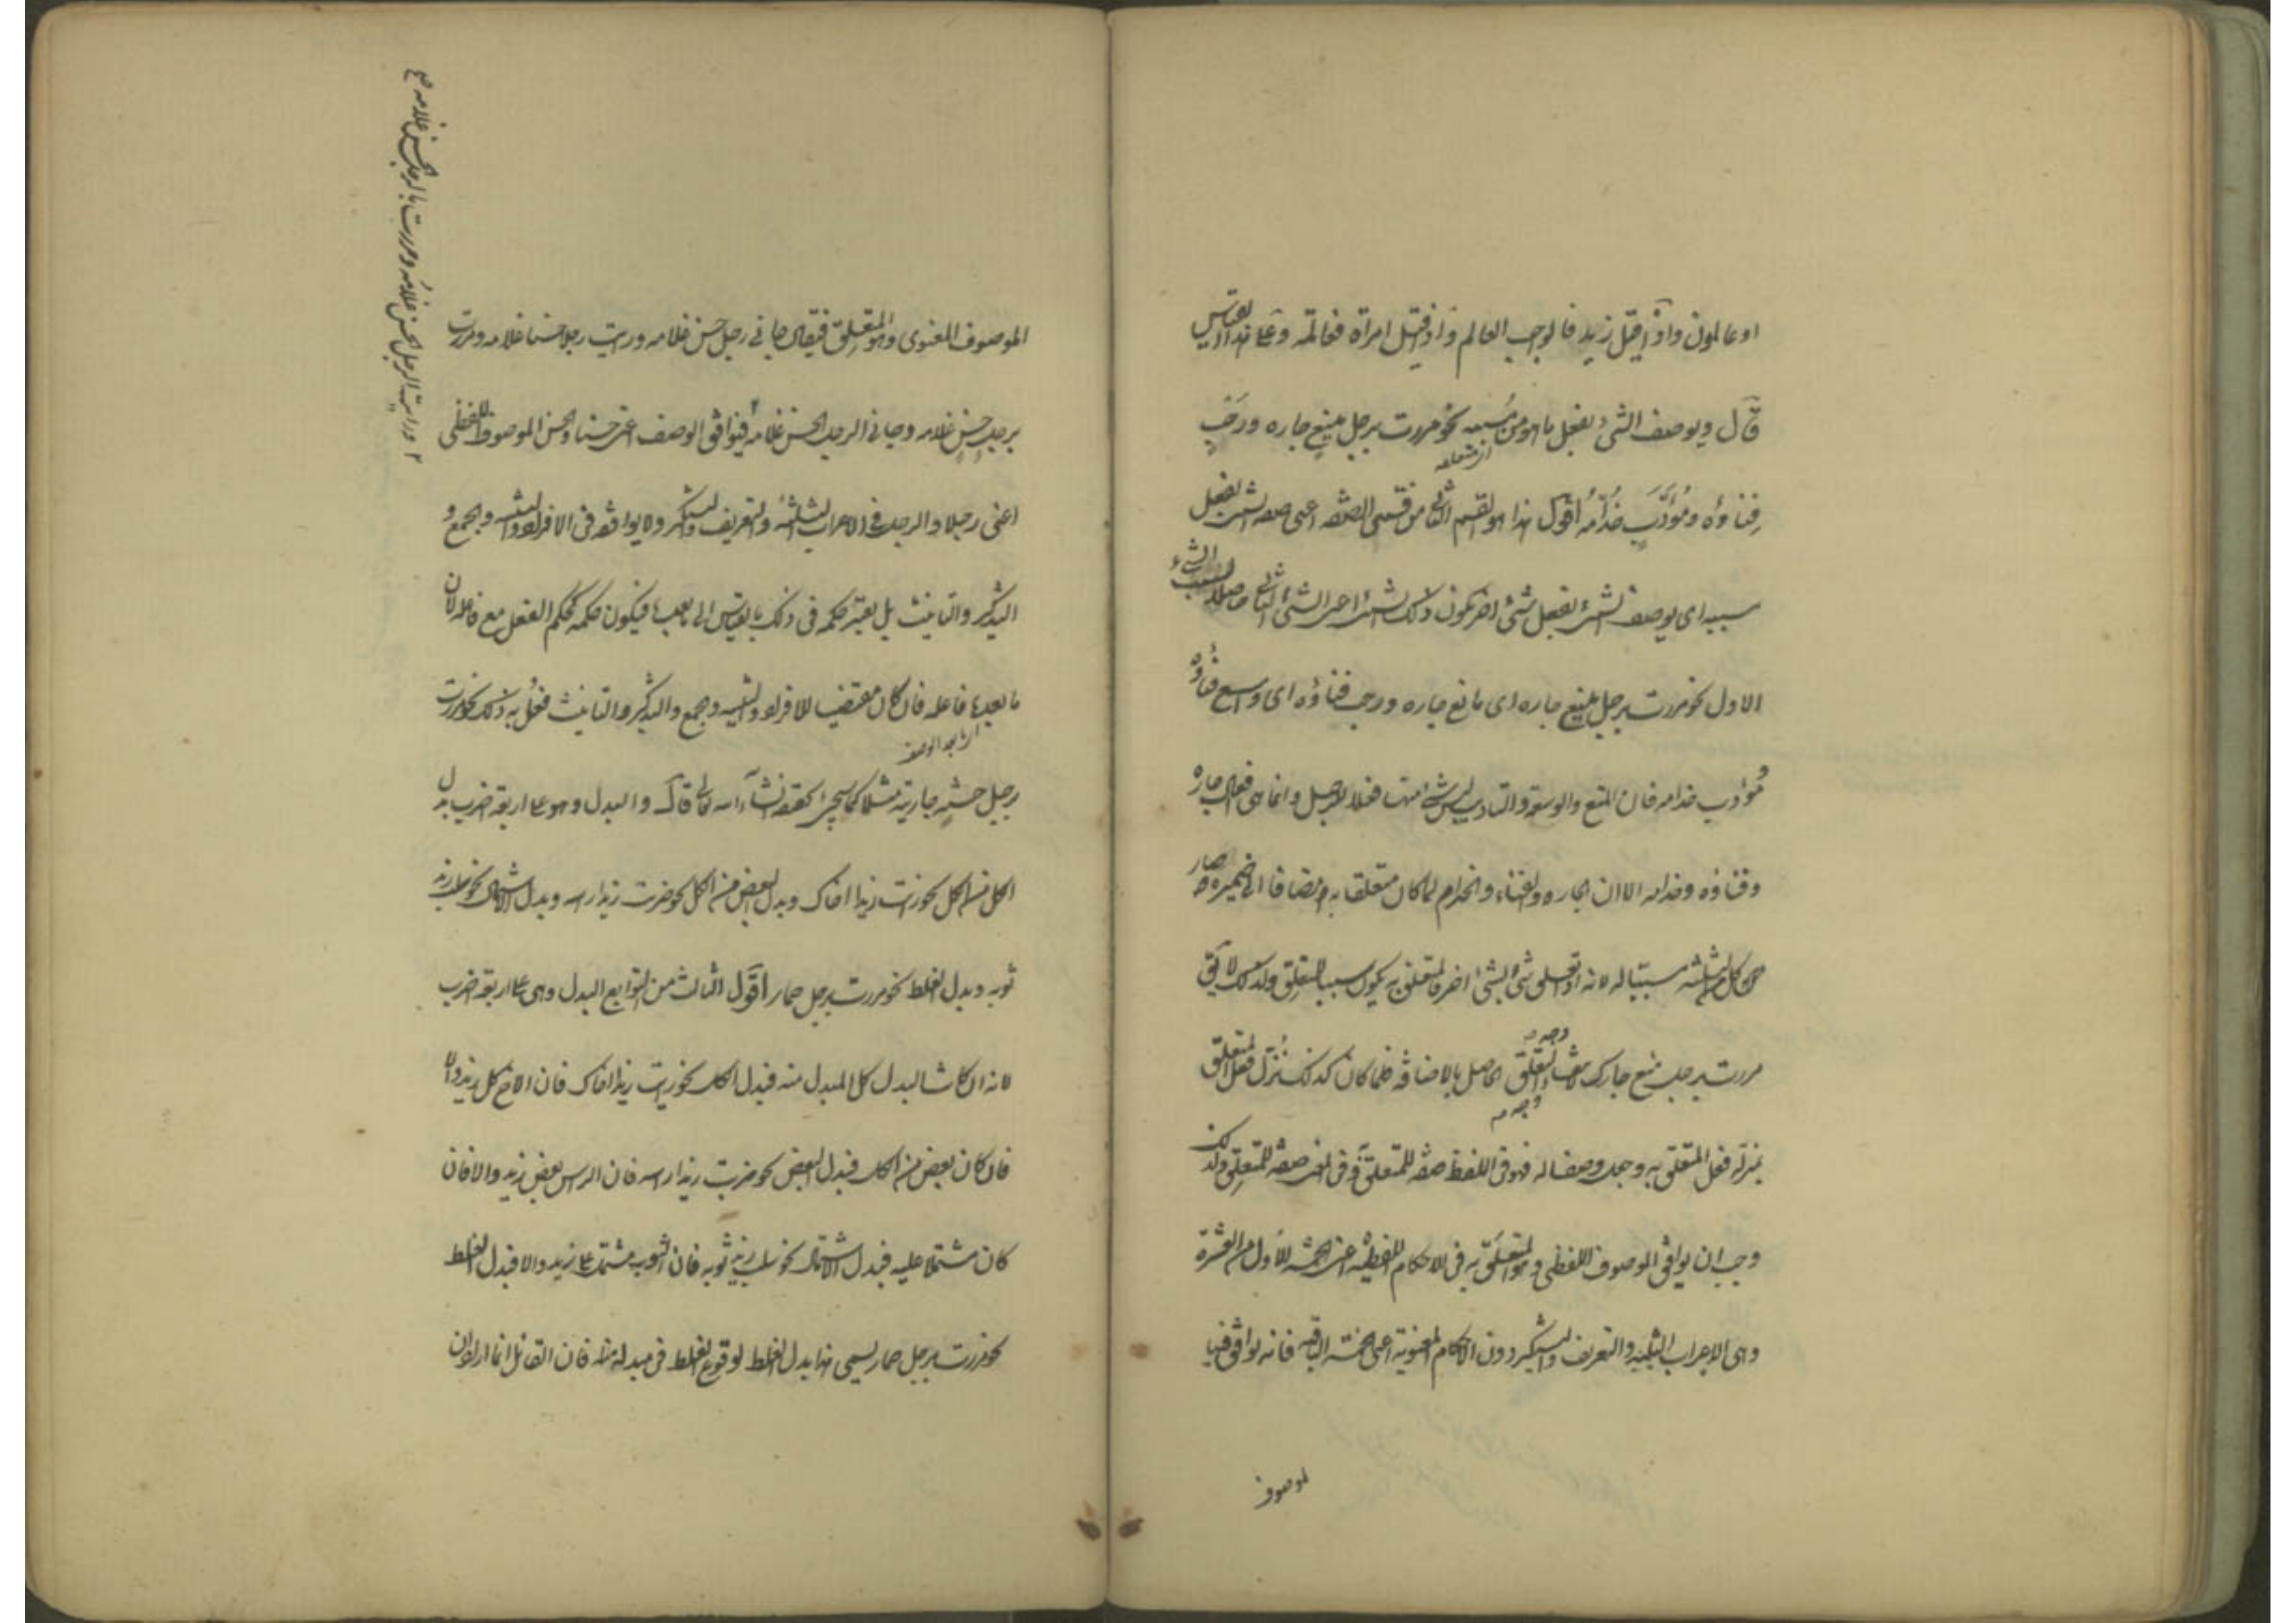 او عالمون واذا قيل زيد فالواجب العالم واذا قيل امرأة فعالمة وعلى هذا القياس
قال ويوصف الشئ بفعل ما هو من سببه نحو مررت برجل منيع جاره ورحب
اى متعلقه
فناؤه ومؤدب خدامه اقول هذا هو القسم الثانى من قسمى الصفة اعنى صفة الشئ بفعل
سببه اى يوصف الشئ بفعل شئ اخر يكون ذلك الشئ الثانى حاصلا بسبب الشئ
الاول نحو مررت برجل منيع جاره اى مانع جاره ورحب فناؤه اى واسع فناؤه
ومؤدب خدامه فان المنع والوسعة والتاديب ليس شئ منها فعلا للرجل وانما هى فعل جاره
وفناؤه وخدامه الا ان الجار والفناء والخدام لما كان متعلقا به مضافا الى ضميره صار
كل الثلثة سببا له لانه اذا تعلق شئ بشئ اخر فالمتعلق به يكون سببا للمتعلق ولذلك لا يقال
مررت برجل منيع جارك التعلق الحاصل بالاضافة فلما كان كذلك نزل فعل المتعلق
بمنزلة فعل المتعلق به وجعل وصفا له فهو فى اللفظ صفة للمتعلق به وفى المعنى صفة للمتعلق ولذلك
وجب ان يوافق الموصوف اللفظى وهو المتعلق به فى الاحكام اللفظية اعنى الخمسة الاول من العشرة
وهى الاعراب الثلثة والتعريف والتنكير دون الاحكام المعنوية اعنى الخمسة الباقية فانه يوافق فيها
الموصوف
الموصوف المعنوى وهو المتعلق فيقال جانى رجل حسن غلامه ورايت رجلا حسنا غلامه ومررت
برجل حسن غلامه وجانى الرجل الحسن غلامه فيوافق الوصف اعنى حسنا والحسن الموصوف اللفظى
اعنى رجلا والرجل فى الاعراب الثلثة والتعريف والتنكير ولا يوافقه فى الافراد والتثنية والجمع و
التذكير والتانيث بل يعتبر حكمه فى ذلك بالقياس الى ما بعدها فيكون حكمه كحكم الفعل مع فاعله لان
ما بعدها فاعله فان كان مقتضيا للافراد والتثنية وجمع والتذكير والتانيث فعل به ذلك نحو مررت
اى ما بعد الوصف
برجل حسنة جاريته مثلا كما سيجئ تحقيقه انشاء الله تعالى قال والبدل وهو على اربعة اضرب بدل
الكل من الكل نحو رايت زيدا اخاك وبدل البعض من الكل نحو ضربت زيدا راسه وبدل الاشتمال نحو سلب زيد
ثوبه وبدل الغلط نحو مررت برجل حمار اقول الثالث من التوابع البدل وهى على اربعة اضرب
لانه ان كان البدل كل المبدل منه فبدل الكل نحو رايت زيدا اخاك فان الاخ كل زيد والا
فان كان بعض من الكل فبدل البعض نحو ضربت زيدا راسه فان الراس بعض زيد والا فان
كان مشتملا عليه فبدل الاشتمال نحو سلب زيد ثوبه فان الثوب مشتمل على زيد والا فبدل الغلط
نحو مررت برجل حمار يسمى هذا بدل الغلط لوقوع الغلط فى مبدله منه فان القائل انما اراد ان
ورايت الرجل الحسن غلامه ومررت بالرجل الحسن غلامه صح